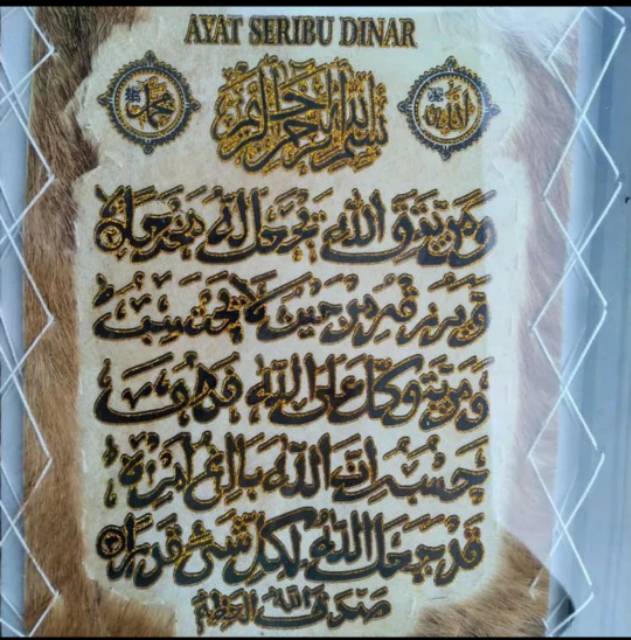 AYAT SERIBU DINAR
الله
بسم الله الرحمن الرحيم
محمد ﷺ
وَمَن يَتَّقِ اللَّهَ يَجْعَل لَّهُ مَخْرَجًا ٢
وَيَرْزُقْهُ مِنْ حَيْثُ لَا يَحْتَسِبُ
وَمَن يَتَوَكَّلْ عَلَى اللَّهِ فَهُوَ
حَسْبُهُ إِنَّ اللَّهَ بَالِغُ أَمْرِهِ
قَدْ جَعَلَ اللَّهُ لِكُلِّ شَيْءٍ قَدْرًا ٣
صدق الله العظيم